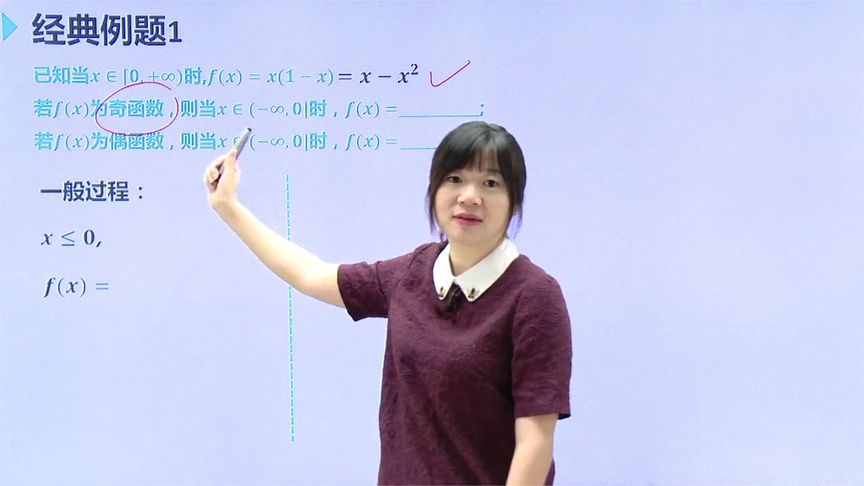 经典例题1
已知当x ∈ [0, +∞)时,f(x) = x(1 − x) = x − x²
若f(x)为奇函数，则当x ∈ (−∞, 0]时，f(x) =________;
若f(x)为偶函数，则当x ∈ (−∞, 0]时，f(x) =____
一般过程：
x ≤ 0,
f(x) =